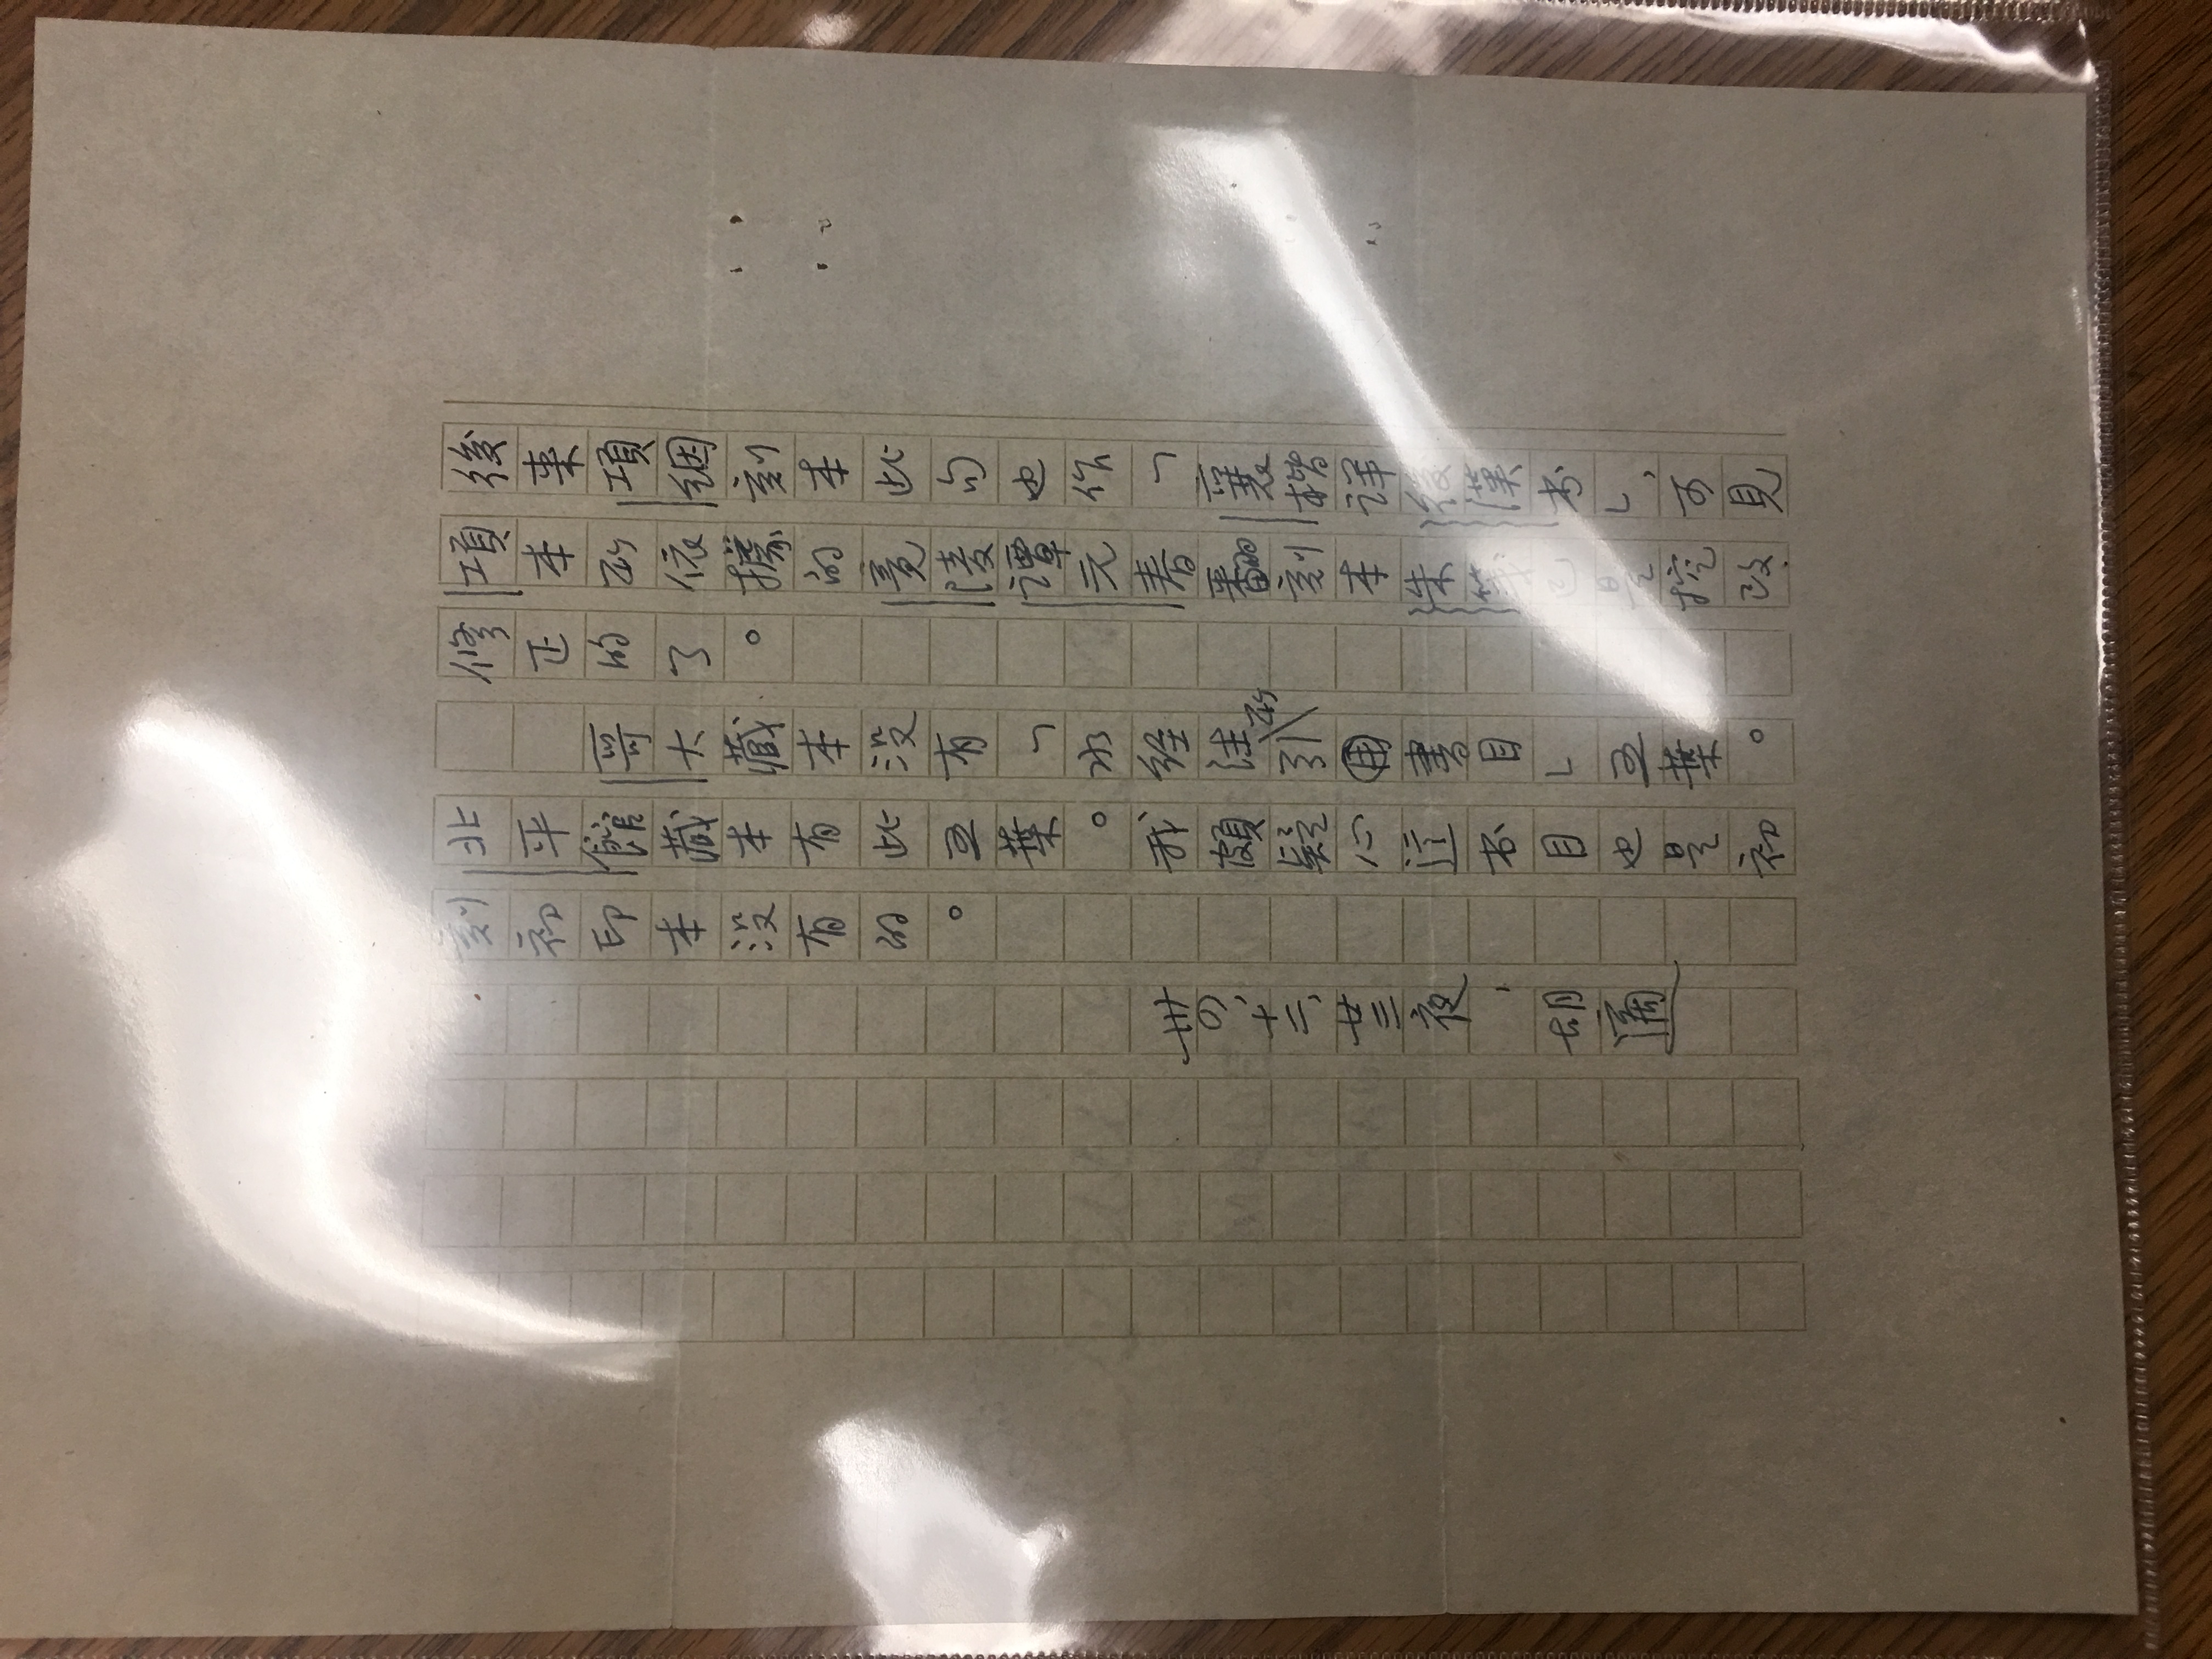 後来項絪刻本此句也作「襄楷詳後漢书」,可見
項本所依據的竟陵譚元春翻刻本朱箋已是挖改
修正的了。
哥大藏本没有「水經注所引用書目」五葉。
北平館藏本有此五葉。我頗疑心這书目也是初
刻初印本没有的。
卅四、十二、廿三夜,胡適